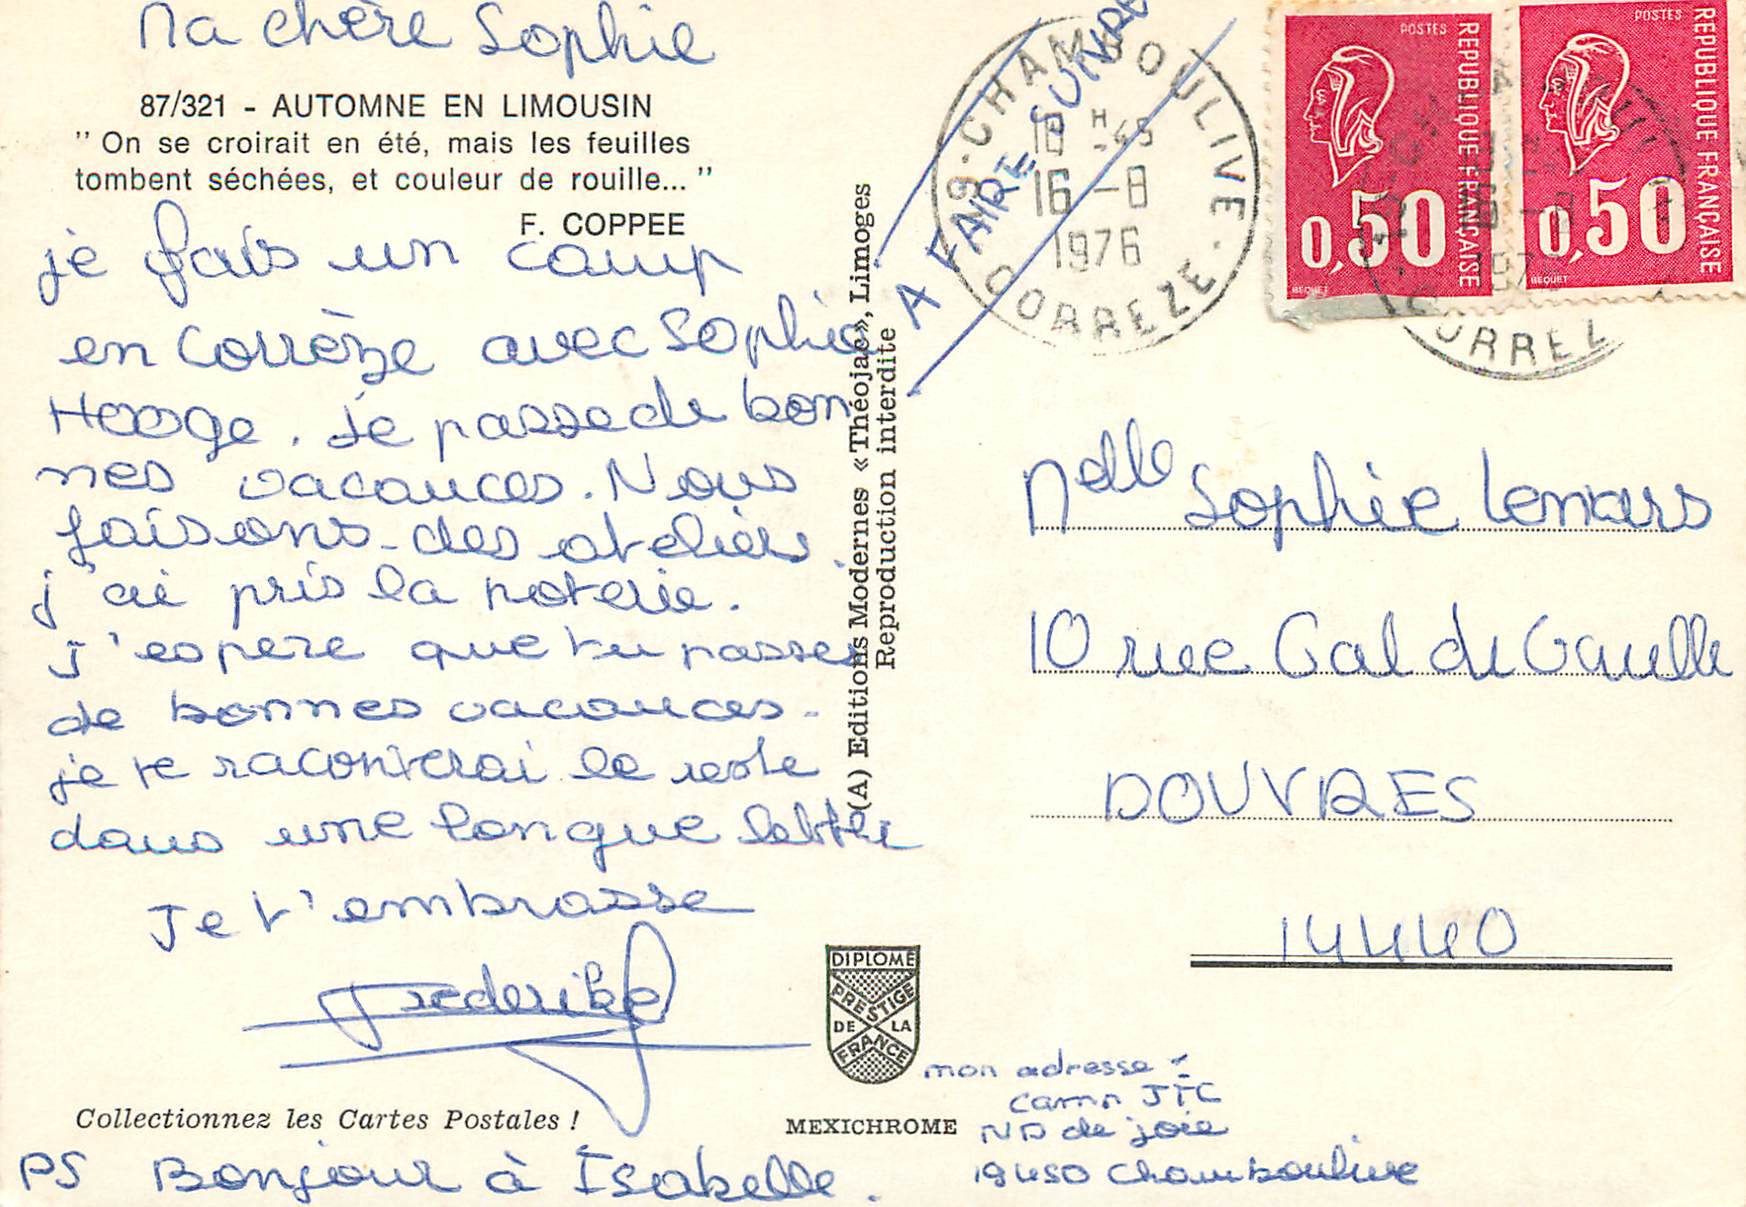 Ma chère Sophie
87/321 - AUTOMNE EN LIMOUSIN
" On se croirait en été, mais les feuilles
tombent séchées, et couleur de rouille... "
F. COPPEE
je fais un camp
en Corrèze avec Sophie
Hooge. Je passe de bon
nes vacances. Nous
faisons des ateliers.
j'ai pris la poterie.
J'espere que tu passes
de bonnes vacances.
je te raconterai le reste
dans une longue lettre
Je t'embrasse
Frederike
Collectionnez les Cartes Postales !
PS Bonjour à Isabelle.
(A) Editions Modernes «Théojac», Limoges
Reproduction interdite
DIPLOME
PRESTIGE
DE LA
FRANCE
MEXICHROME
A FAIRE SUIVRE
19-CHAMBOULIVE.
16 H 45
16 -8
1976
CORREZE
POSTES
REPUBLIQUE FRANÇAISE
0,50
BEQUET
POSTES
REPUBLIQUE FRANÇAISE
0,50
BEQUET
Melle Sophie Lemars
10 rue Gal de Gaulle
DOUVRES
14440
mon adresse :
camp JTC
ND de joie
19450 Chamboulive